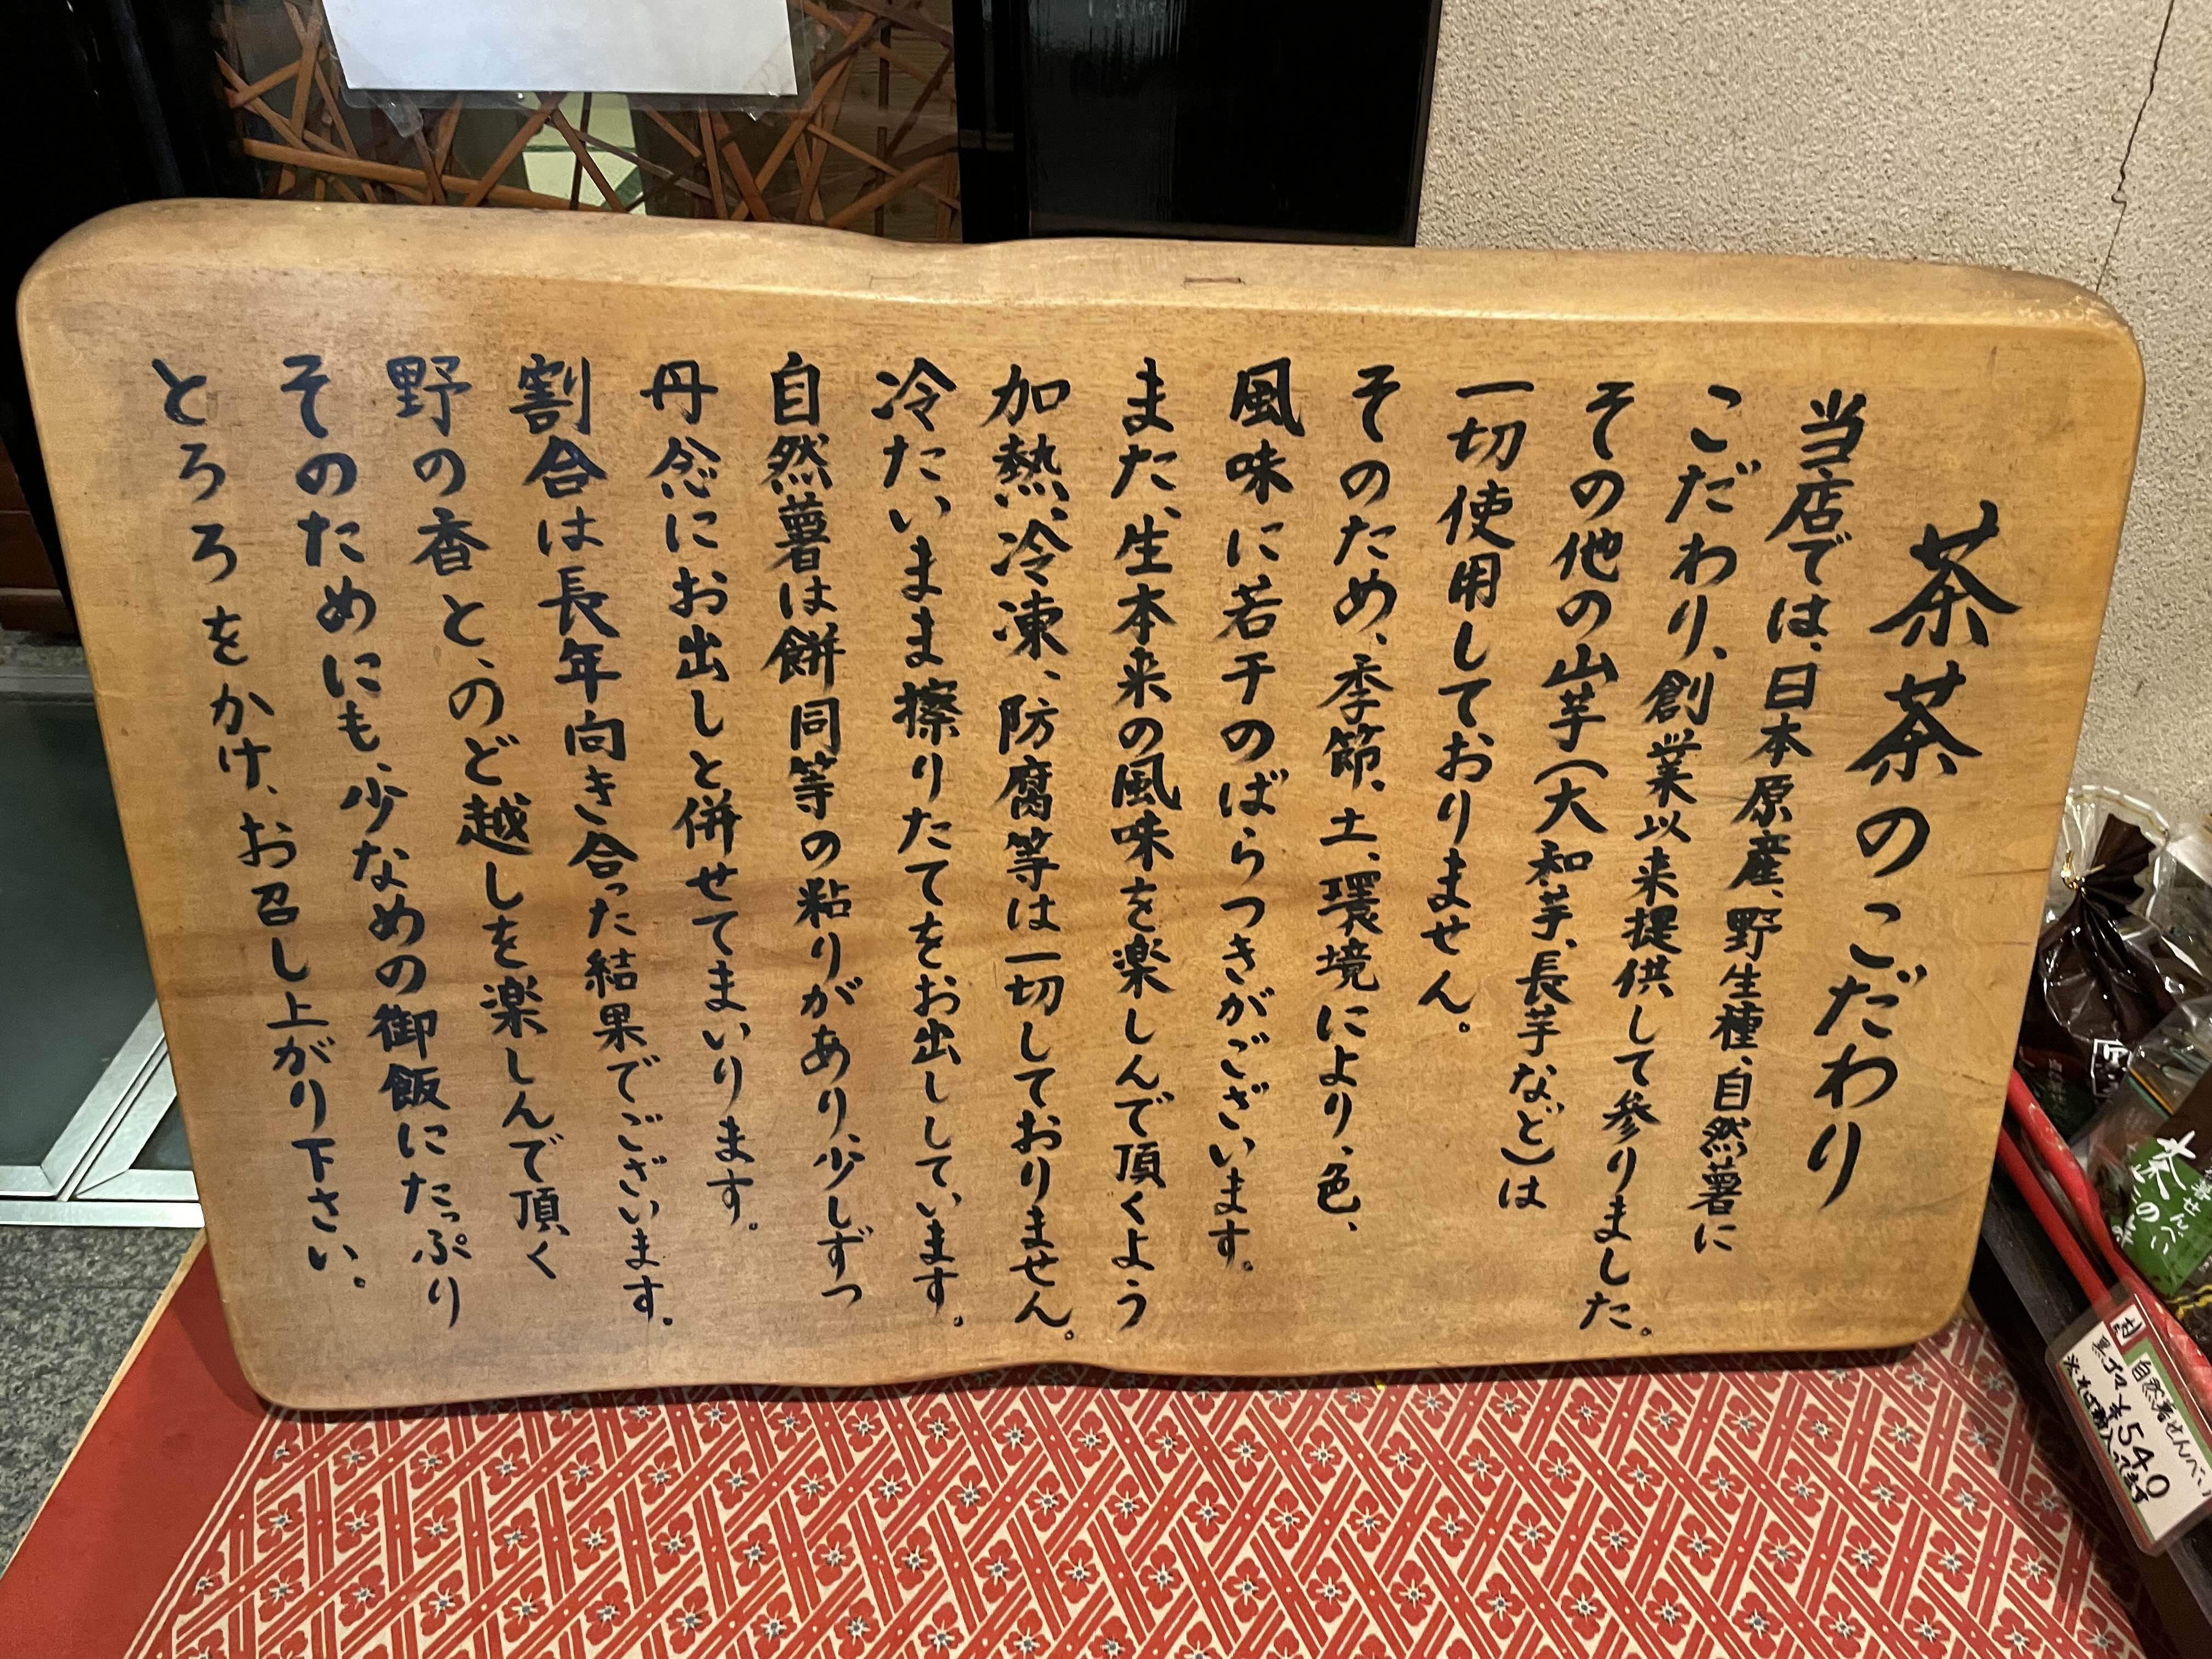 茶茶のこだわり
当店では、日本原産、野生種、自然薯に
こだわり、創業以来提供して参りました。
その他の山芋(大和芋、長芋など)は
一切使用しておりません。
そのため、季節、土、環境により、色、
風味に若干のばらつきがございます。
また、生本来の風味を楽しんで頂くよう
加熱、冷凍、防腐等は一切しておりません。
冷たいまま擦りたてをお出ししています。
自然薯は餅同等の粘りがあり、少しずつ
丹念にお出しと併せてまいります。
割合は長年向き合った結果でございます。
野の香と、のど越しを楽しんで頂く
そのためにも、少なめの御飯にたっぷり
とろろをかけ、お召し上がり下さい。
自然薯せんべい
¥540